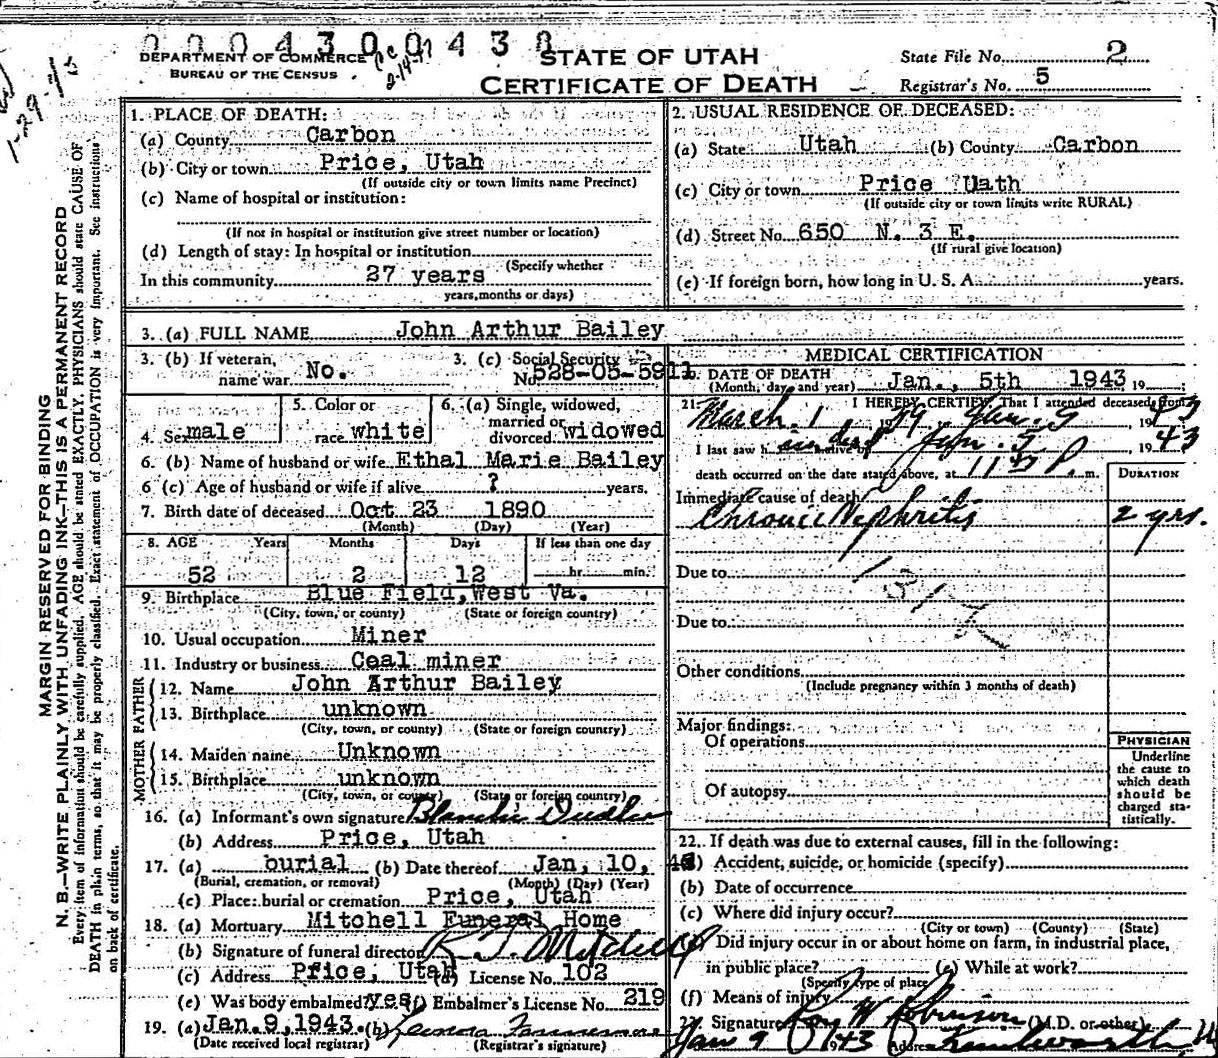 0 0 0 4 3 0 0 4 3 8
DEPARTMENT OF COMMERCE
BUREAU OF THE CENSUS
STATE OF UTAH
CERTIFICATE OF DEATH
State File No. 2
Registrar's No. 5
1-29-
2-14-
MARGIN RESERVED FOR BINDING
N. B.—WRITE PLAINLY WITH UNFADING INK—THIS IS A PERMANENT RECORD
Every item of information should be carefully supplied. AGE should be stated EXACTLY. PHYSICIANS should state CAUSE OF
DEATH in plain terms, so that it may be properly classified. Exact statement of OCCUPATION is very important. See instructions
on back of certificate.
1. PLACE OF DEATH:
(a) County Carbon
(b) City or town Price, Utah
(If outside city or town limits name Precinct)
(c) Name of hospital or institution:
(If not in hospital or institution give street number or location)
(d) Length of stay: In hospital or institution
(Specify whether
In this community 27 years
years, months or days)
2. USUAL RESIDENCE OF DECEASED:
(a) State Utah (b) County Carbon
(c) City or town Price Uath
(If outside city or town limits write RURAL)
(d) Street No. 650 N. 3 E.
(If rural give location)
(e) If foreign born, how long in U. S. A. years.
3. (a) FULL NAME John Arthur Bailey
3. (b) If veteran, name war No.
3. (c) Social Security No. 528-03-5911
4. Sex male
5. Color or race white
6. (a) Single, widowed, married or divorced widowed
6. (b) Name of husband or wife Ethal Marie Bailey
6 (c) Age of husband or wife if alive ? years.
7. Birth date of deceased Oct 23 1890
(Month) (Day) (Year)
8. AGE Years Months Days If less than one day
52 2 12 hr. min.
9. Birthplace Blue Field, West Va.
(City, town, or county) (State or foreign country)
10. Usual occupation Miner
11. Industry or business Coal miner
FATHER
12. Name John Arthur Bailey
13. Birthplace unknown
(City, town, or county) (State or foreign country)
MOTHER
14. Maiden name Unknown
15. Birthplace unknown
(City, town, or county) (State or foreign country)
16. (a) Informant's own signature Blanche Dudler
(b) Address Price, Utah
17. (a) burial (b) Date thereof Jan, 10, 43
(Burial, cremation, or removal) (Month) (Day) (Year)
(c) Place: burial or cremation Price, Utah
18. (a) Mortuary Mitchell Funeral Home
(b) Signature of funeral director R. J. Mitchell
(c) Address Price, Utah (d) License No. 102
(e) Was body embalmed? yes (f) Embalmer's License No. 219
19. (a) Jan. 9, 1943. (b)
(Date received local registrar) (Registrar's signature)
MEDICAL CERTIFICATION
20. DATE OF DEATH
(Month, day, and year) Jan., 5th 1943 19 ;
21. I HEREBY CERTIFY, That I attended deceased from
March 1 1939 Jan. 5, 1943
I last saw him dead alive on Jan. 5, 1943
death occurred on the date stated above, at P. m.
DURATION
Immediate cause of death
Chronic Nephritis 2 yrs.
Due to
131
Due to
Other conditions
(Include pregnancy within 3 months of death)
Major findings:
Of operations
Of autopsy
PHYSICIAN
Underline
the cause to
which death
should be
charged sta-
tistically.
22. If death was due to external causes, fill in the following:
(a) Accident, suicide, or homicide (specify)
(b) Date of occurrence
(c) Where did injury occur?
(City or town) (County) (State)
(d) Did injury occur in or about home on farm, in industrial place,
in public place? (e) While at work?
(Specify type of place
(f) Means of injury
23. Signature Roy W Robinson (M.D. or other)
Jan 9 1943 Address Kenilworth U